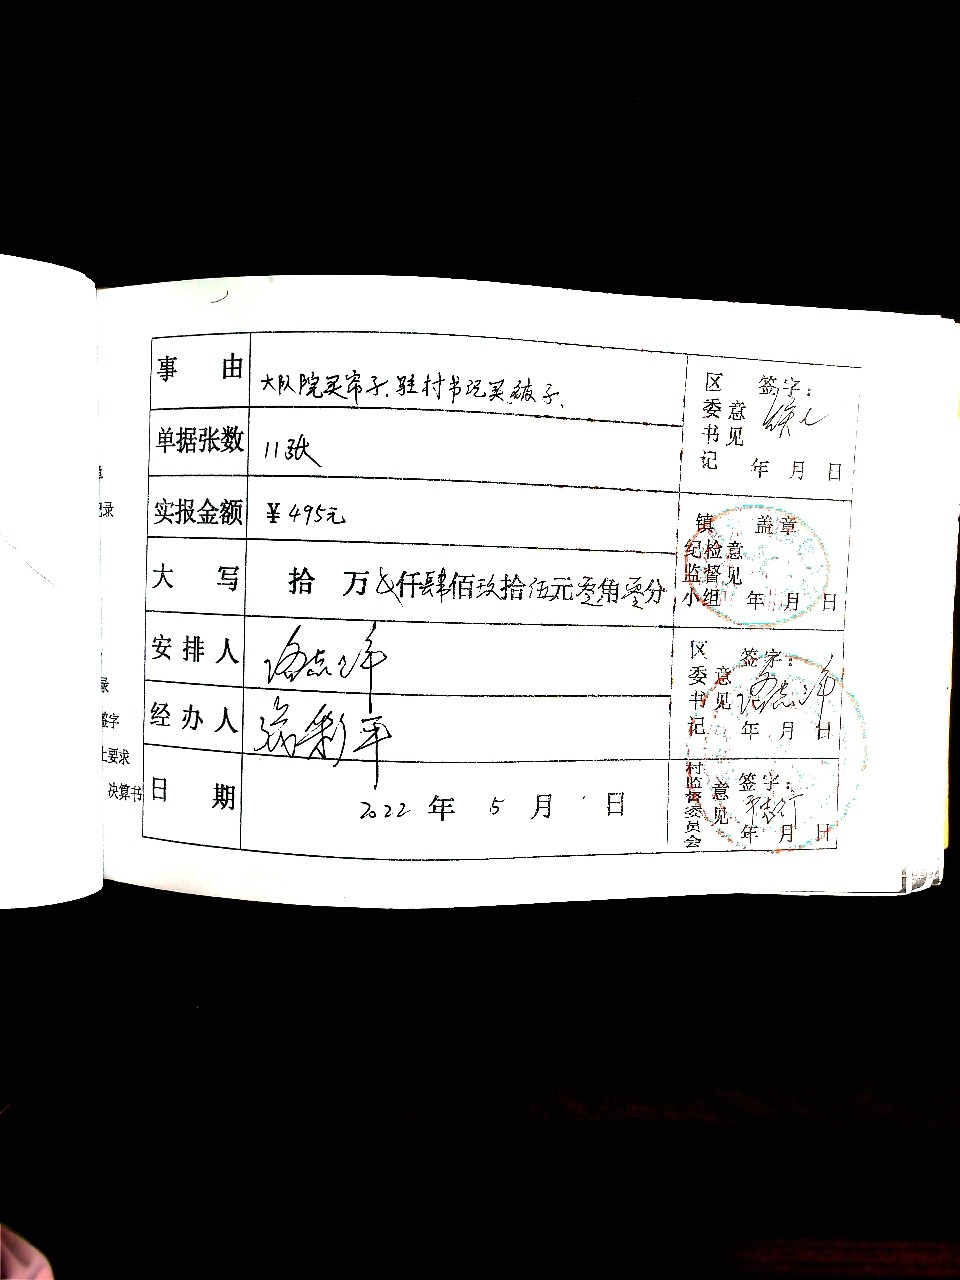 事由 大队院买帘子、驻村书记买被子、
单据张数 11张
实报金额 ¥495元
大写 拾 万 仟肆佰玖拾伍元零角零分
安排人
经办人 彩平
日期 2022年5月 日
区委书记意见 签字:
年 月 日
镇纪检监督小组意见 盖章
年 月 日
区委书记意见 签字:
年 月 日
村监督委员会意见 签字:
年 月 日
录
签字
上要求
决算书